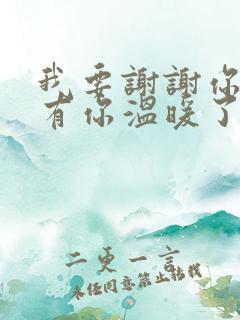 我要謝謝你
有你溫暖了
二更一言
未经同意禁止转载